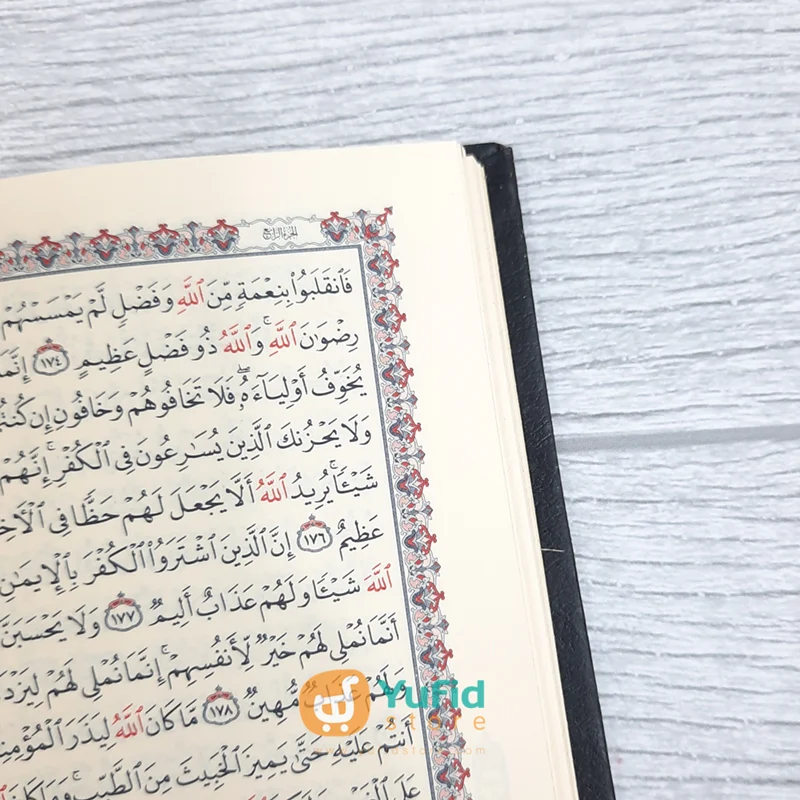 الجزء الرابع
فَٱنقَلَبُوا۟ بِنِعْمَةٍ مِّنَ ٱللَّهِ وَفَضْلٍ لَّمْ يَمْسَسْهُمْ
رِضْوَٰنَ ٱللَّهِ ۗ وَٱللَّهُ ذُو فَضْلٍ عَظِيمٍ ١٧٤ إِنَّمَا
يُخَوِّفُ أَوْلِيَآءَهُۥ فَلَا تَخَافُوهُمْ وَخَافُونِ إِن كُنتُم
وَلَا يَحْزُنكَ ٱلَّذِينَ يُسَٰرِعُونَ فِى ٱلْكُفْرِ ۚ إِنَّهُمْ
شَيْـًٔا ۗ يُرِيدُ ٱللَّهُ أَلَّا يَجْعَلَ لَهُمْ حَظًّا فِى
عَظِيمٌ ١٧٦ إِنَّ ٱلَّذِينَ ٱشْتَرَوُا۟ ٱلْكُفْرَ بِٱلْإِيمَٰنِ
ٱللَّهَ شَيْـًٔا وَلَهُمْ عَذَابٌ أَلِيمٌ ١٧٧ وَلَا يَحْسَبَنَّ
أَنَّمَا نُمْلِى لَهُمْ خَيْرٌ لِّأَنفُسِهِمْ ۚ إِنَّمَا نُمْلِى لَهُمْ
وَلَهُمْ عَذَابٌ مُّهِينٌ ١٧٨ مَّا كَانَ ٱللَّهُ لِيَذَرَ
أَنتُمْ عَلَيْهِ حَتَّىٰ يَمِيزَ ٱلْخَبِيثَ مِنَ ٱلطَّيِّبِ ۗ وَمَا كَانَ
Yufid
store